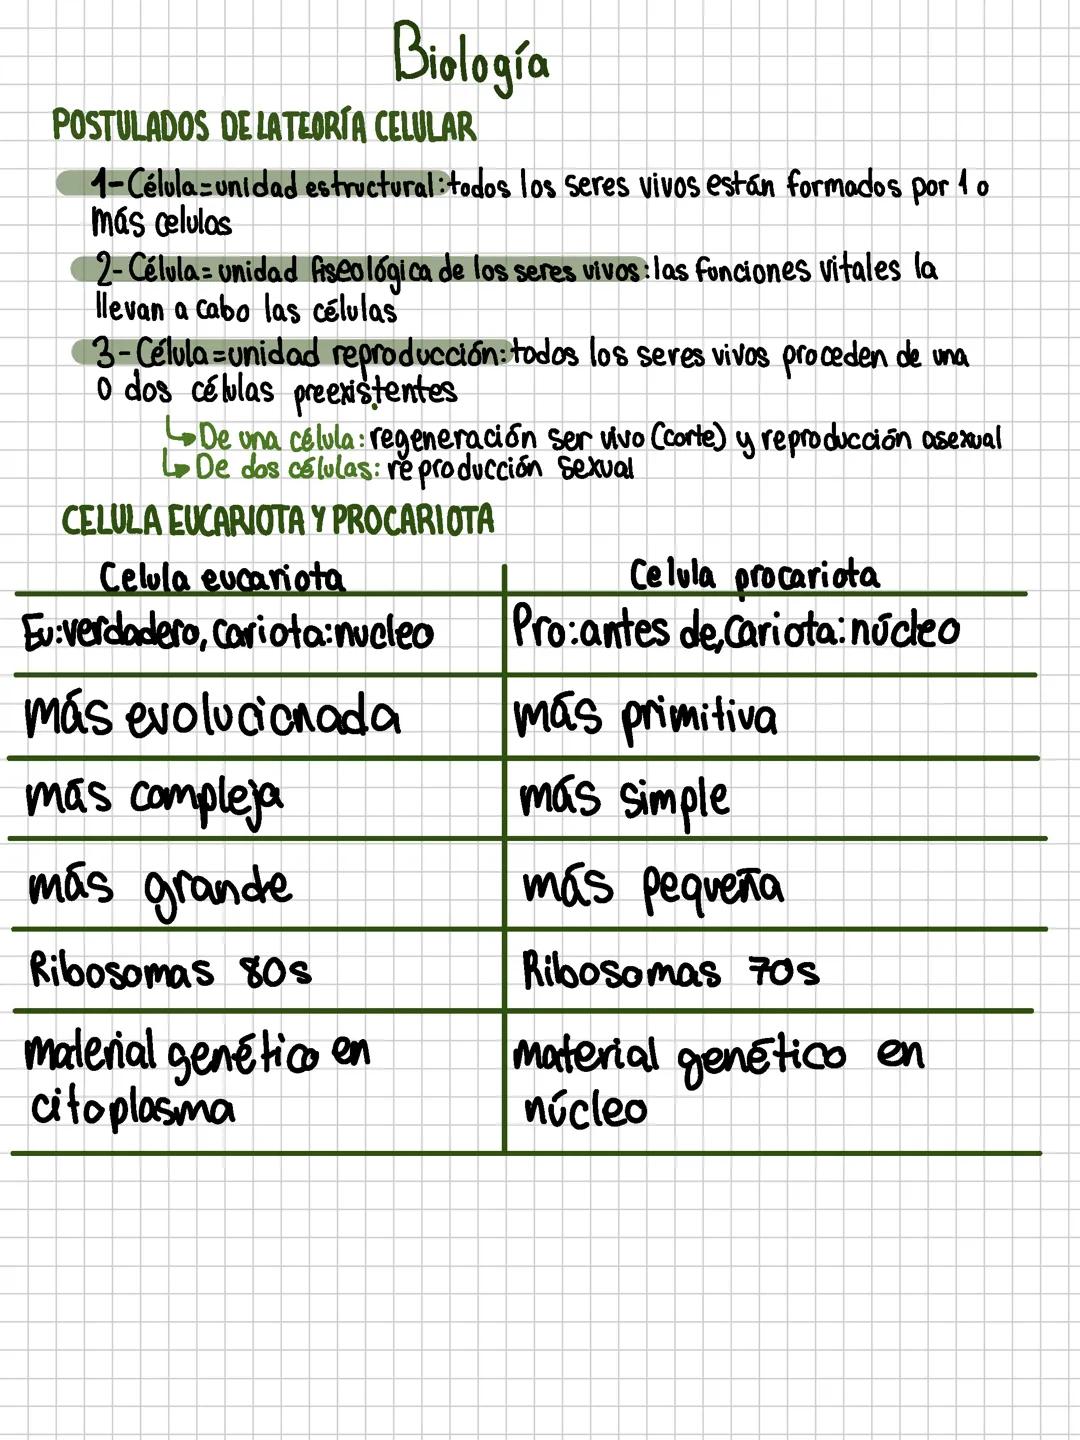 Biología
POSTULADOS DE LA TEORÍA CELULAR
1-Célula=unidad estructural: todos los seres vivos están formados por 1 o
más celulas
2-Célula= unidad fiseológica de los seres vivos: las funciones vitales la
llevan a cabo las células
3-Célula=unidad reproducción: todos los seres vivos proceden de una
o dos células preexistentes
↳De una célula: regeneración ser vivo (corte) y reproducción asexual
↳De dos células: reproducción sexual
CELULA EUCARIOTA Y PROCARIOTA
Celula eucariota Celula procariota
Eu:verdadero, cariota:nucleo Pro:antes de, cariota: núcleo
más evolucionada más primitiva
más compleja más simple
más grande más pequeña
Ribosomas 80s Ribosomas 70s
material genético en material genético en
citoplasma núcleo